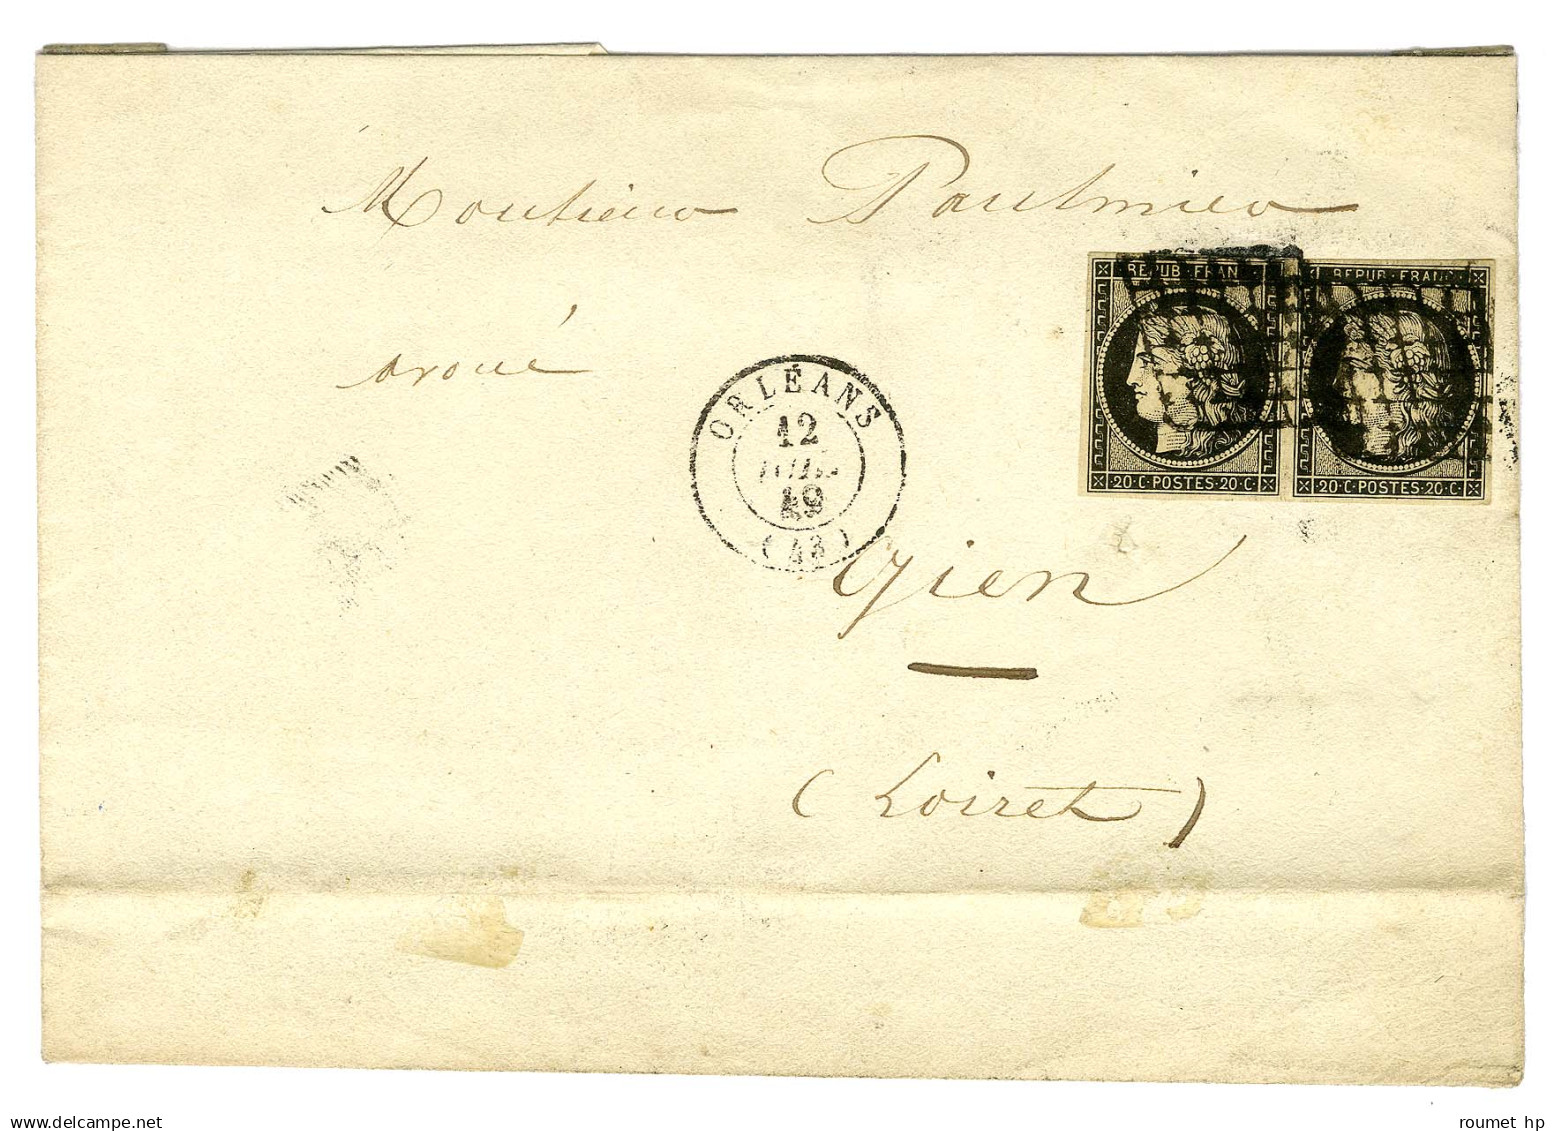 Monsieur Paulmier
avoué
REPUB·FRANC
REPUB·FRANC
20·C·POSTES·20·C·
20·C·POSTES·20·C·
ORLÉANS
12
JUIL.
49
(43)
Gien
(Loiret)
www.delcampe.net
roumet hp